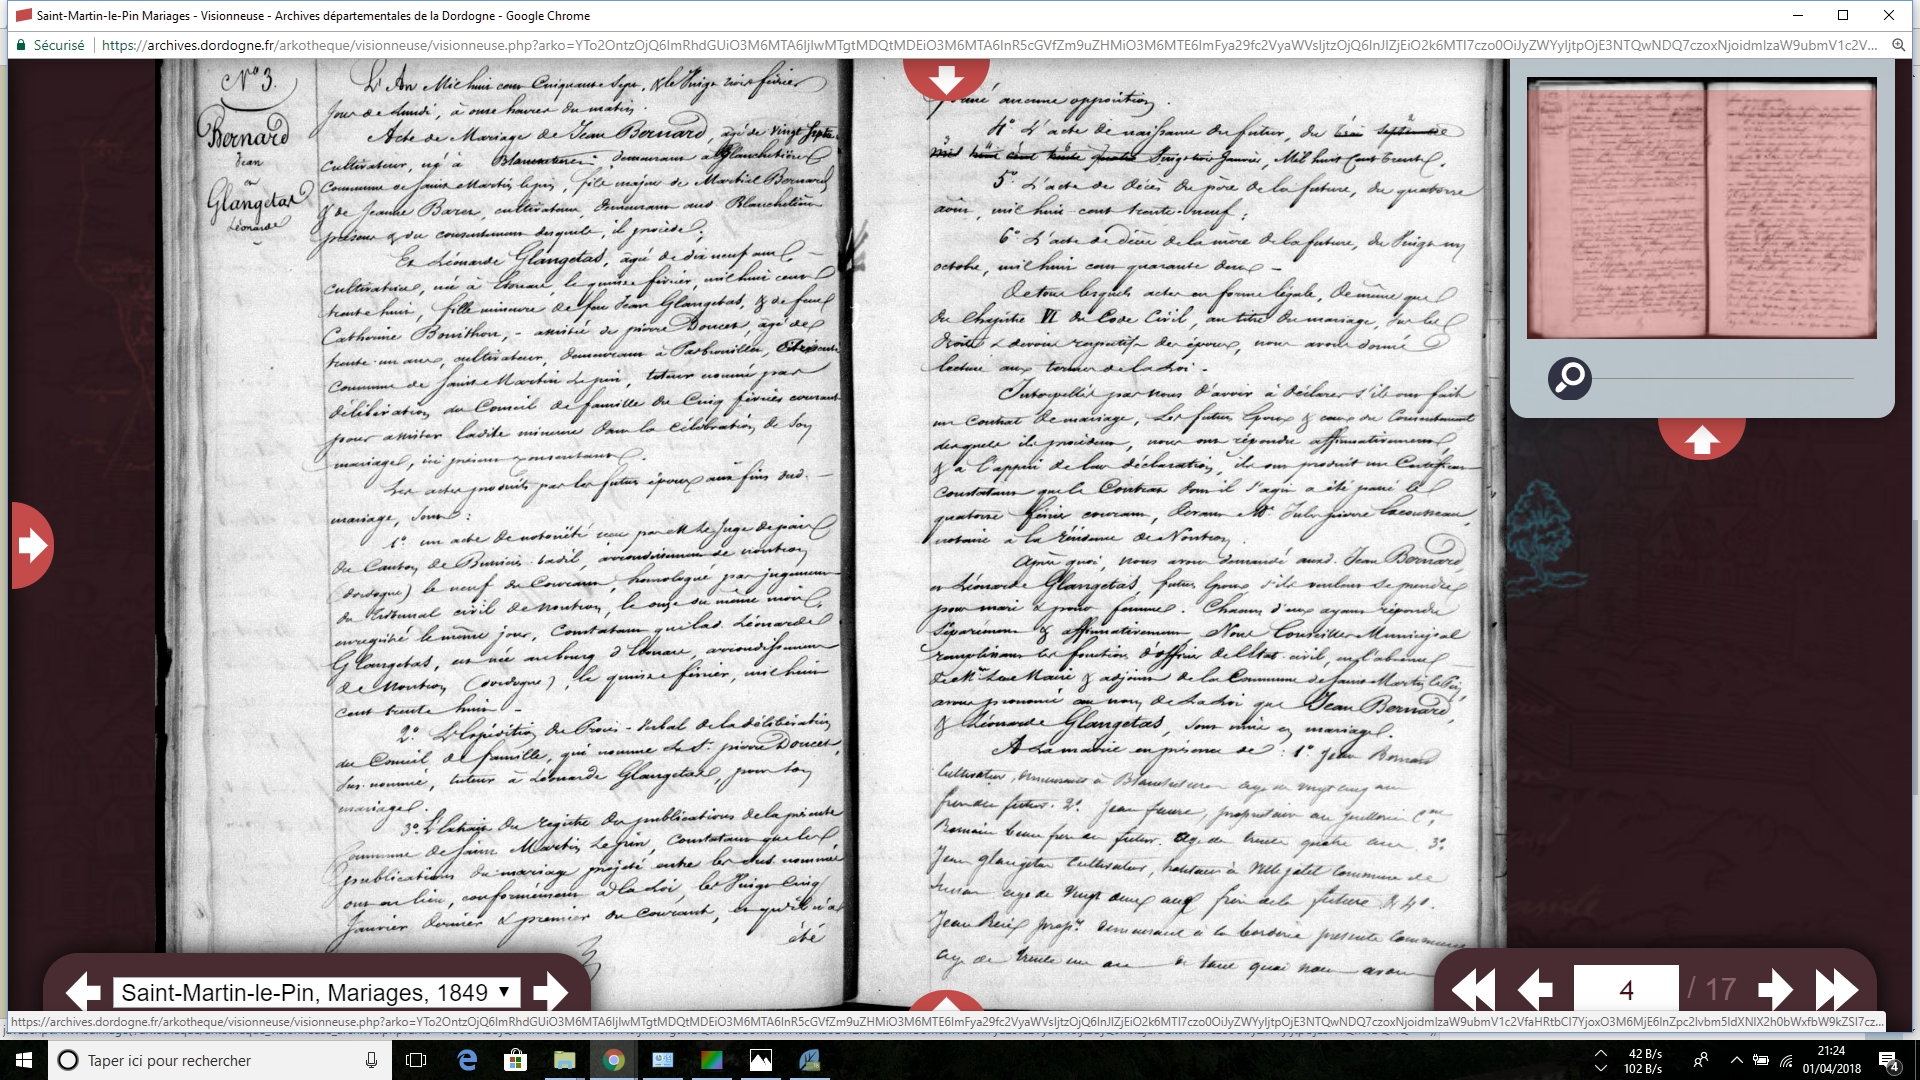 Saint-Martin-le-Pin Mariages - Visionneuse - Archives départementales de la Dordogne - Google Chrome
Sécurisé
N° 3.
Bernard
Jean
et
Glangetas
Léonarde
L'An Mil huit cent Cinquante Sept, & le Vingt trois février
jour de Lundi, à onze heures du matin.
Acte de Mariage de Jean Bernard, âgé de vingt sept ans
Cultivateur, né à demeurant à Blanchetière
Commune de Saint Martin lepin, fils majeur de Martial Bernard
& de Jeanne cultivateurs, demeurant aud. Blanchetière
présens & du consentement desquels, il procède;
Et Léonarde Glangetas, âgée de dix neuf ans,
cultivatrice, née à le quinze février, mil huit cent
trente huit, fille mineure de feu Jean Glangetas, & de feue
Catherine assistée de pierre Doucet, âgé de
trente un ans, cultivateur, demeurant à
Commune de Saint Martin Le pin, tuteur nommé par
délibération du Conseil de famille du Cinq février courant
pour assister ladite mineure dans la célébration de son
mariage, ici présent & consentant.
Les actes produits par les futurs époux aux fins dud.
mariage, sont :
1° un acte de notoriété reçu par M. Le Juge de paix
du Canton de Bussière badil, arrondissement de nontron
(dordogne) le neuf du Courant, homologué par jugement
du Tribunal civil de nontron, le onze du même mois,
enregistré le même jour, Constatant que lad. Léonarde
Glangetas, est née au bourg d' arrondissement
de Nontron (dordogne), le quinze février, mil huit
cent trente huit.
2° L'Expédition du Procès-Verbal de la délibération
du Conseil de famille, qui nomme Le Sr. pierre Doucet,
sus-nommé, tuteur à Léonarde Glangetas, pour son
mariage.
3° L'Extrait du registre des publications de la présente
Commune de Saint Martin Le pin, Constatant que les
publications du mariage projeté entre les sus nommés
ont eu lieu, conformément à la Loi, les Vingt Cinq
Janvier dernier & premier du Courant, et qu'il n'a
été
formé aucune opposition.
4° L'acte de naissance du futur, du
Vingt trois Janvier, Mil huit Cent Trente.
5° L'acte de décès du père de la future, du quatorze
août, mil huit-cent trente-neuf;
6° L'acte de décès de la mère de la future, du Vingt un
octobre, mil huit cent quarante deux
De tous lesquels actes en forme légale, de même que
du Chapitre VI du Code Civil, au titre du mariage, sur les
droits & devoirs respectifs des époux, nous avons donné
lecture aux termes de la Loi.
Interpellés par nous d'avoir à déclarer s'ils ont fait
un Contrat de mariage, Les futurs Epoux & ceux du Consentement
desquels ils procèdent, nous ont répondu affirmativement,
& à l'appui de leur déclaration, ils ont produit un Certificat
constatant que le Contrat dont il s'agit a été passé le
quatorze février courant, devant Me. Jules pierre
notaire à la résidence de Nontron.
Après quoi, nous avons demandé aud. Jean Bernard
et Léonarde Glangetas, futurs Epoux, s'ils veulent se prendre
pour mari & pour femme. Chacun d'eux ayant répondu
Séparément & affirmativement, Nous Conseiller Municipal
remplissant les fonctions d'officier de l'état-civil, en l'absence
de Mrs. Les Maire & adjoint de la Commune de Saint Martin le Pin,
avons prononcé au nom de La Loi que Jean Bernard,
& Léonarde Glangetas, sont unis en mariage.
A La mairie en présence de : 1° Jean Bernard
Cultivateur, demeurant à age de vingt cinq ans
frère du futur. 2° Jean faure, propriétaire au
beau frère du futur. age de trente quatre ans. 3°
Jean glangetas Cultivateur, habitant à Commune de
age de vingt deux ans frère de la future & 4°.
Jean propre. demeurant à la présente commune
age de trente un ans de tout quoi nous avons
Saint-Martin-le-Pin, Mariages, 1849
4 / 17
Taper ici pour rechercher
42 B/s
102 B/s
21:24
01/04/2018
4